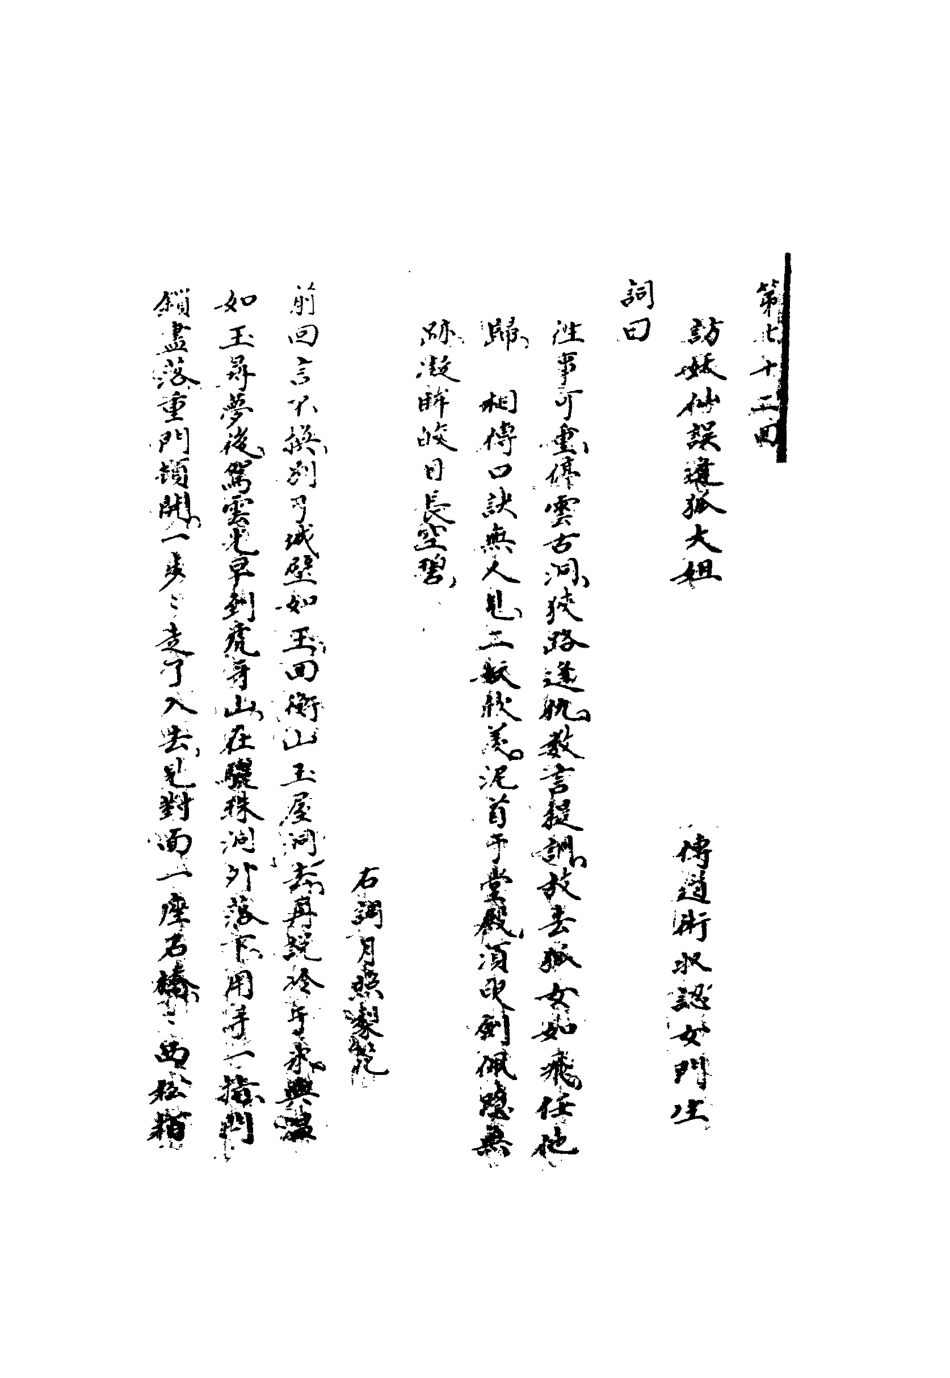 第七十二回
訪妖仙誤遭狐大姐 傳道術收認女門生
詞曰
徃事可重停雲古洞狹路逢仇教言提調放去狐女如飛任他
歸 相傳口訣無人見二妖欣羡泥首于堂殿須臾劍佩隱無
跡凝眸皎日長空碧
右調月照梨花
前回言不換別了城璧如玉回衡山玉屋洞去再說冷于氷與溫
如玉尋夢後駕雲光早到虎牙山在驪珠洞外落下用手一指門
鎖盡落重門鎖開一步〻走了入去見對面一座石橋〻西松栢